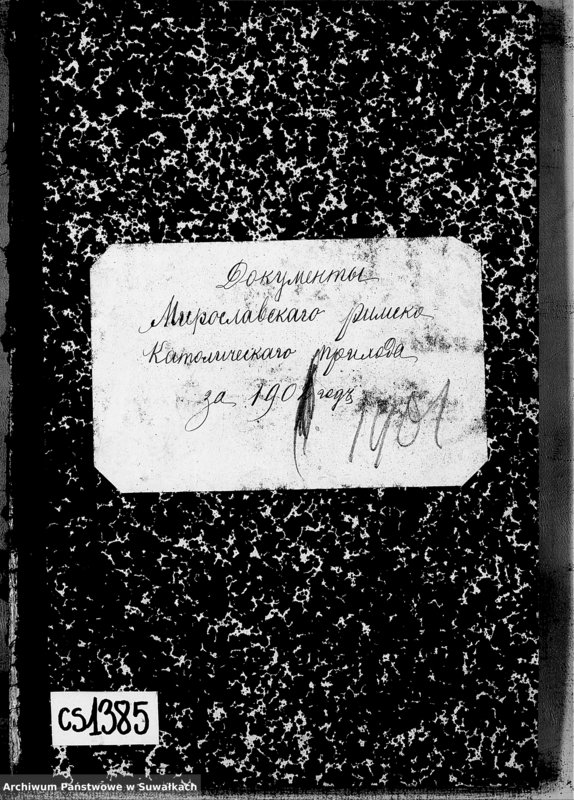 Документы
Мирославскаго римско
Католическаго прихода
за 1901 годъ
1901
CS1385
Archiwum Państwowe w Suwałkach